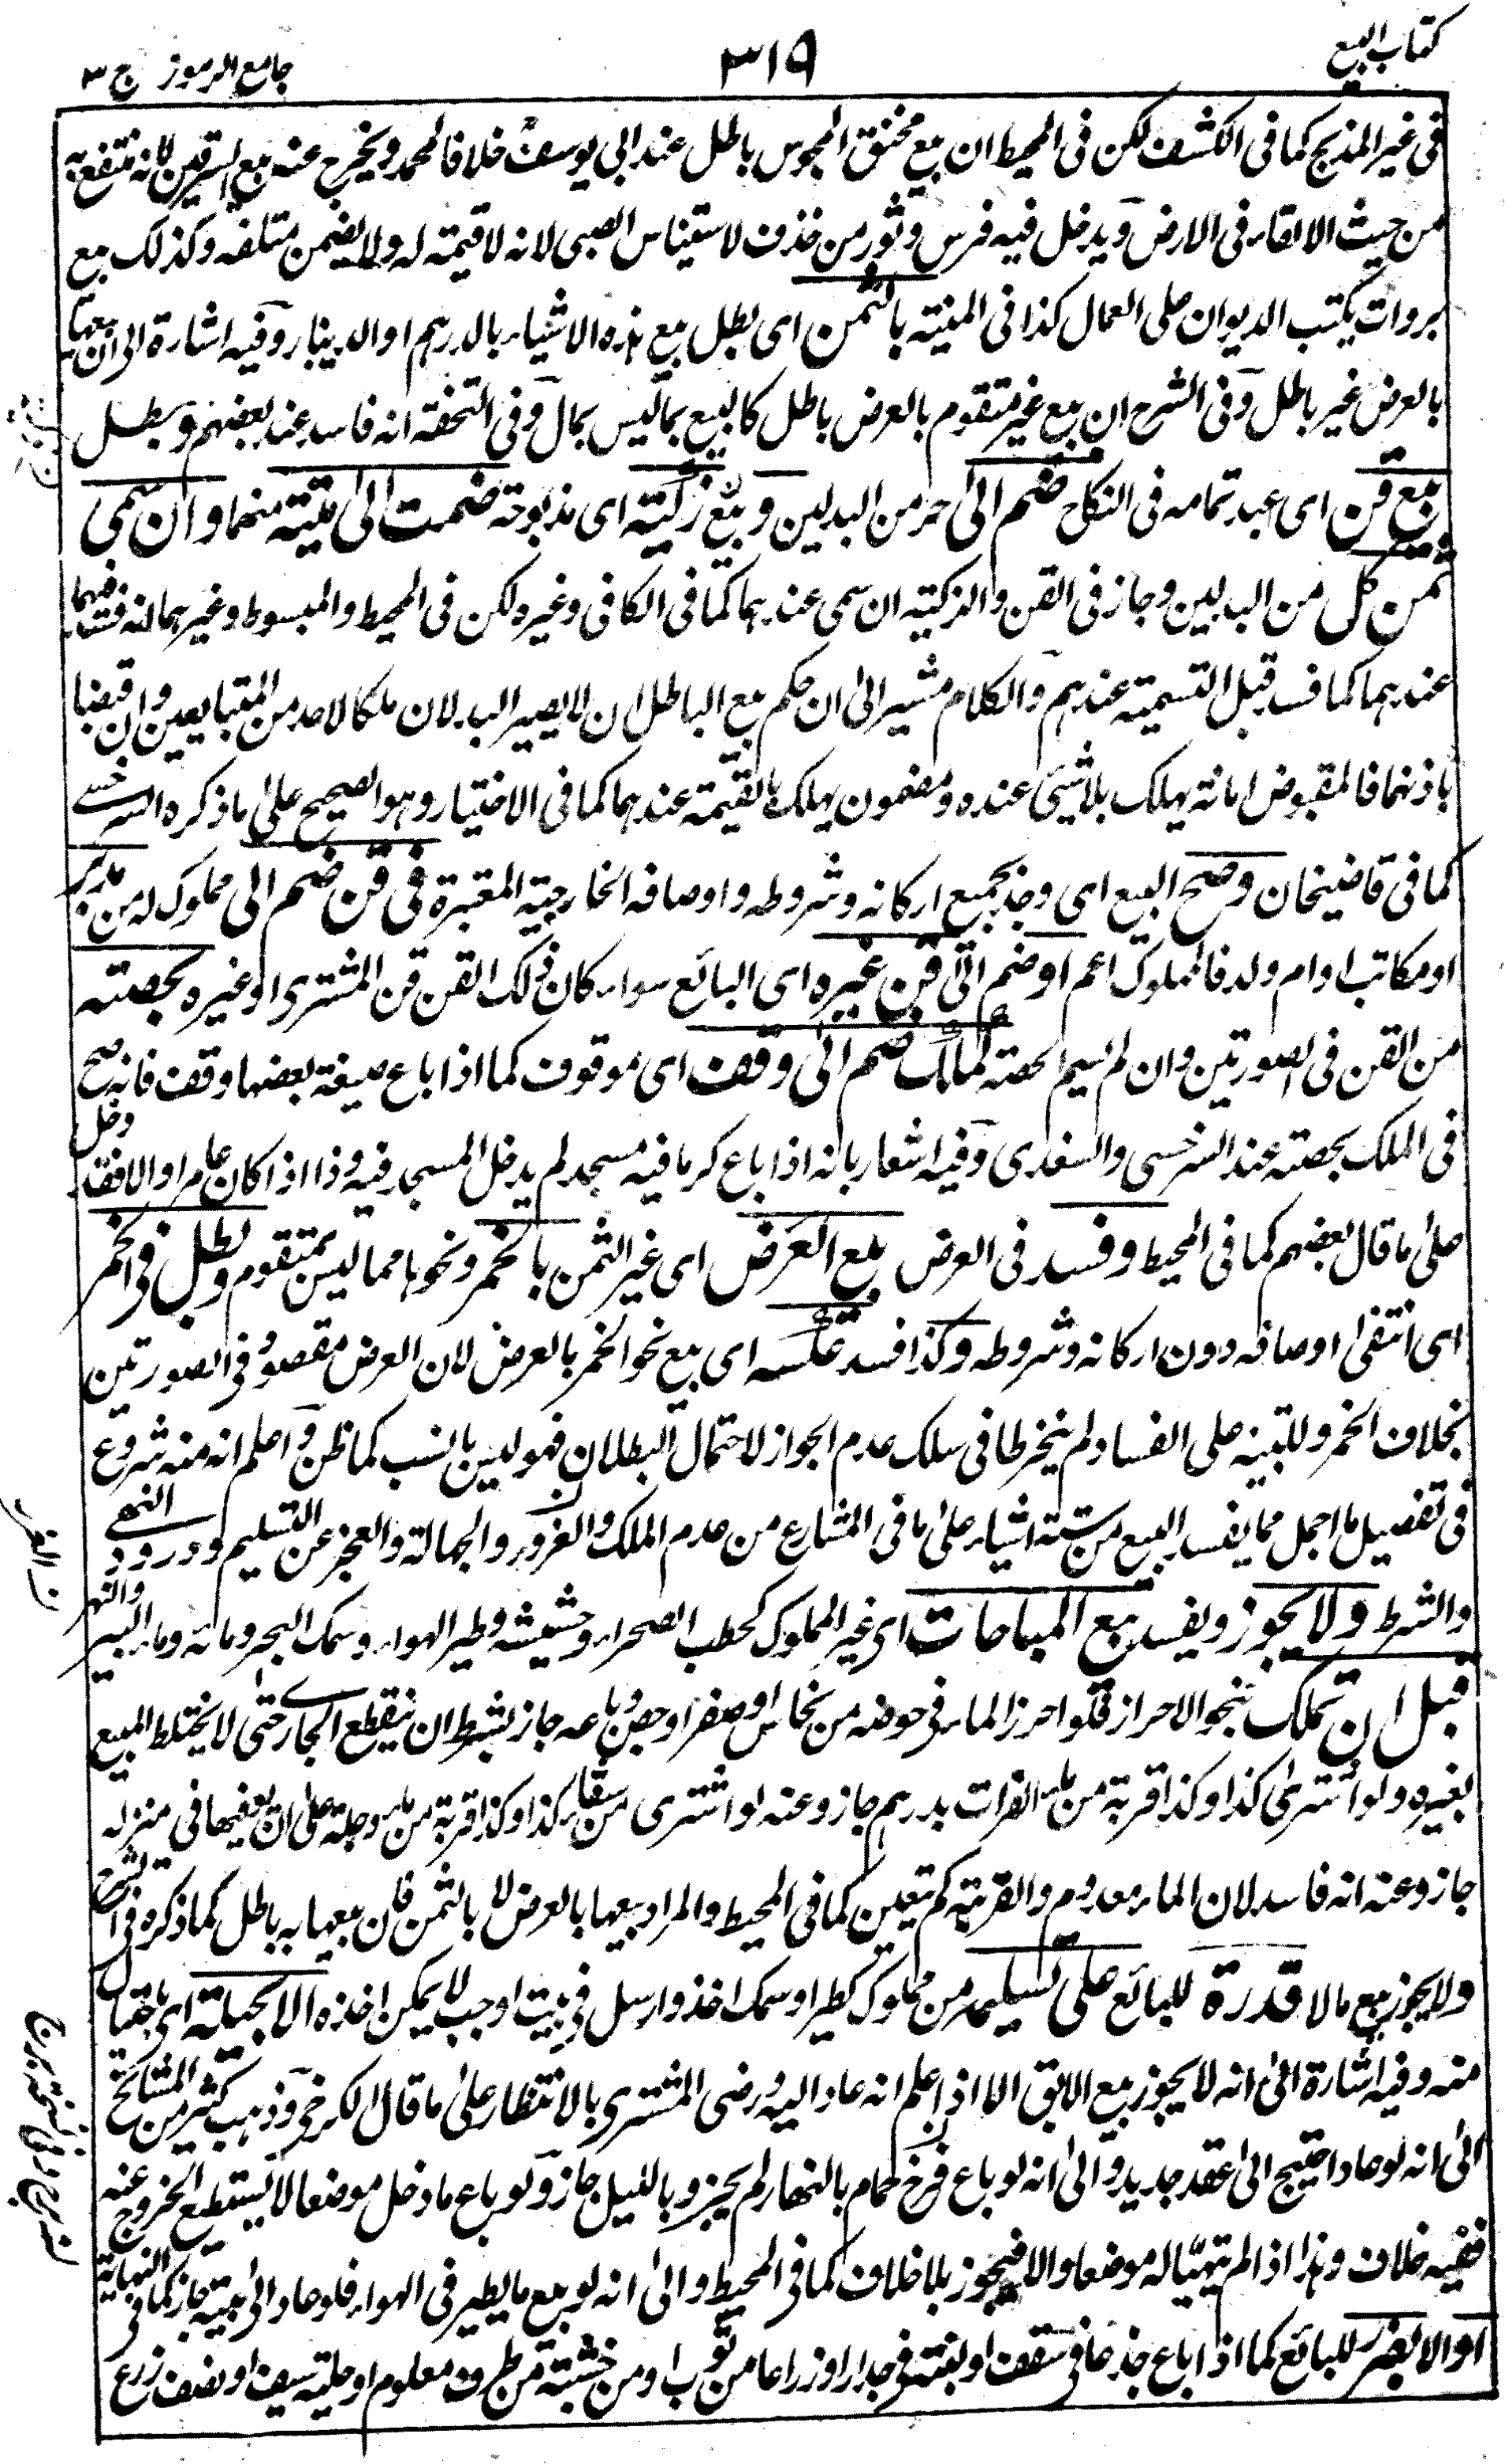 كتاب البيع
٣١٩
جامع الرموز ج ٣
فى غير المذبح كما فى الكشف لكن فى المحيط ان بيع مخنق المجوس باطل عند ابى يوسف خلافا لمحمد ويخرج عنه بيع السرقين لانه منتفع به
من حيث الالقاء فى الارض ويدخل فيه فرس وثور من خذف لاستيناس الصبى لانه لا قيمة له ولا يضمن متلفه وكذلك بيع
بروات يكتب الديوان على العمال كذا فى المنية بالثمن اى بطل بيع هذه الاشياء بالدرهم او الدينار وفيه اشارة الى ان بيعها
بالعرض غير باطل وفى الشرح ان بيع غير متقوم بالعرض باطل كالبيع بما ليس بمال وفى التحفة انه فاسد عند بعضهم وبطل
بيع قن اى عبد تمامه فى النكاح ضم الى حر من البدلين وبيع زكية اى مذبوحة ضمت الى ميتة منهما وان سمى
ثمن كل من البدلين وجاز فى القن والذكية ان سمى عندهما كما فى الكافى وغيره لكن فى المحيط والمبسوط وغيرهما انه فسد فيهما
عندهما كما فسد قبل التسمية عندهم والكلام مشير الى ان حكم بيع الباطل ان لا يصير البدلان ملكا لاحد من المتبايعين وان قبضا
باذنهما فالمقبوض امانة يهلك بلا شىء عنده ومضمون يهلك بالقيمة عندهما كما فى الاختيار وهو الصحيح على ما ذكره السرخسے
كما فى قاضيخان وصح البيع اى وجد بجميع اركانه وشروطه واوصافه الخارجية المعتبرة فى قن ضم الى مملوك له من مدبر
او مكاتب او ام ولد فالمملوك اعم او ضم الى قن غيره اى البائع سواء كان ذلك القن قن المشترى او غيره بحصته
من القن فى الصورتين وان لم يسم الحصة كملك ضم الى وقف اى موقوف كما اذا باع ضيعة بعضها وقف فانه صح
فى الملك بحصته عند السرخسى والسغدى وفيه اشعار بانه اذا باع كرما فيه مسجد لم يدخل المسجد فيه وذا اذا كان عامرا والا فقد دخل
على ما قال بعضهم كما فى المحيط وفسد فى العرض بيع العرض اى غير الثمن بالخمر ونحوها مما ليس بمتقوم وبطل فى الخمر
اى انتفى اوصافه دون اركانه وشروطه وكذا فسد عكسه اى بيع نحو الخمر بالعرض لان العرض مقصود فى الصورتين
بخلاف الخمر وللتنبيه على الفساد لم ينخرطا فى سلك عدم الجواز لاحتمال البطلان فهو ليس بانسب كما ظن واعلم انه منه شروع
فى تفصيل ما اجمل مما يفسد البيع من ستة اشياء على ما فى المشارع من عدم الملك والغرور والجهالة والعجز عن التسليم وورود النهے
والشرط ولا يجوز ويفسد بيع المباحات اى غير المملوك كحطب الصحراء وحشيشه وطير الهواء وسمك البحر ومائه وماء البئر والنهر
قبل ان تملك بنحو الاحراز فلو احرز الماء فى حوضه من نحاس او صفر او جص وباعه جاز بشرط ان ينقطع الجارے حتى لا يختلط المبيع
بغيره ولو اشترى كذا وكذا قربة من ماء الفرات بدرهم جاز وعنه لو اشترى من سقاء كذا وكذا قربة من ماء دجلة على ان يوفيها فى منزله
جاز وعنه انه فاسد لان الماء معدوم والقربة لم تتعين كما فى المحيط والمراد بيعها بالعرض لا بالثمن فان بيعها به باطل كما ذكره فى الشرح
ولا يجوز بيع ما لا قدرة للبائع على تسليمه من مملوك كطير او سمك اخذ وارسل فى بيت او جب لا يمكن اخذه الا بحيلة اى باحتيال
منه وفيه اشارة الى انه لا يجوز بيع الابق الا اذا علم انه عاد اليه ورضى المشترى بالانتظار على ما قال الكرخى وذهب كثير من المشائخ
الى انه لو عاد احتيج الى عقد جديد والى انه لو باع فرخ حمام بالنهار لم يجز وبالليل جاز ولو باع ما دخل موضعا لا يستطيع الخروج عنه
ففيه خلاف وهذا اذا لم يتهيأ له موضعا والا فيجوز بلا خلاف كما فى المحيط والى انه لو بيع ما يطير فى الهواء فلو عاد الى بيته جاز كما فى النهاية
او الا بضرر للبائع كما اذا باع جذعا فى سقف او لبنة فى جدار او ذراعا من ثوب او من خشبة من طرف معلوم او حلية سيف او نصف زرع